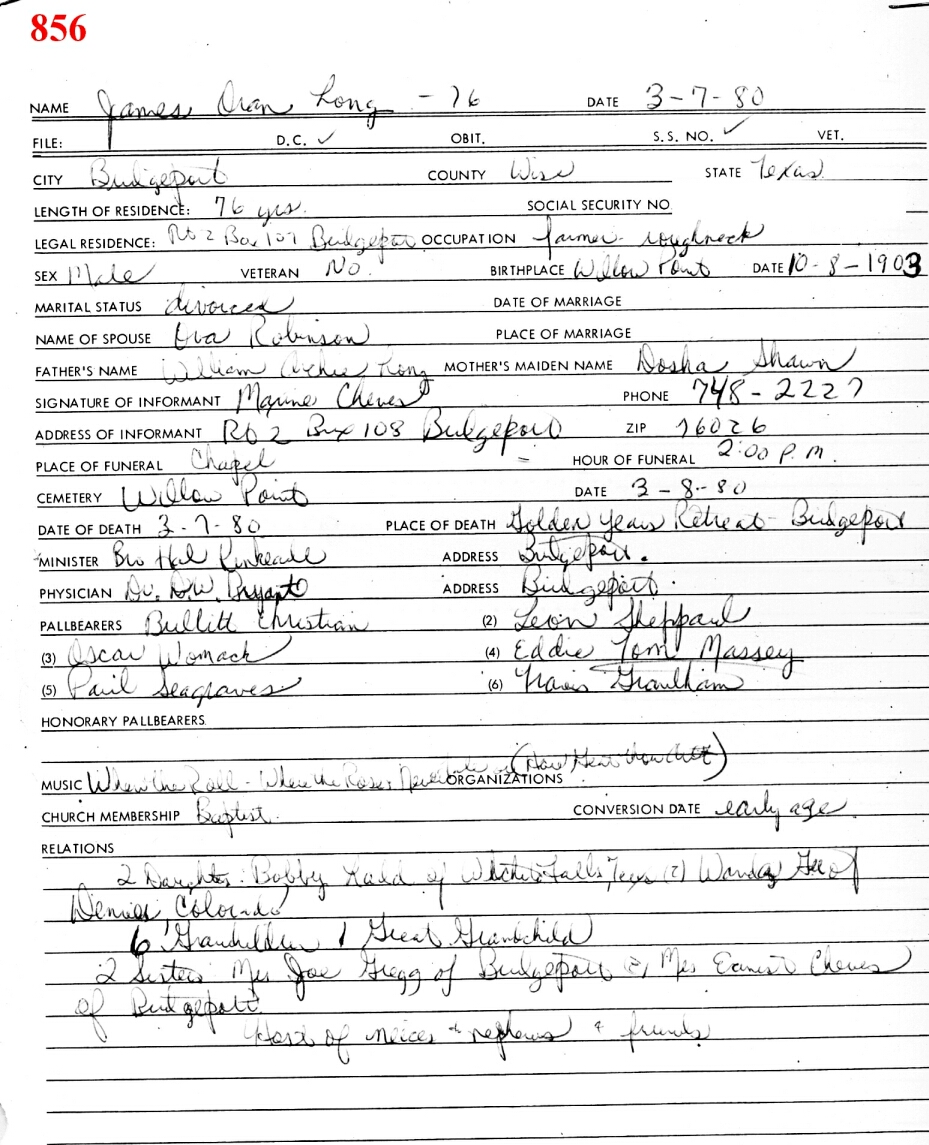 856
NAME James Oran Long - 76 DATE 3-7-80
FILE: D.C. ✓ OBIT. S.S. NO. ✓ VET.
CITY Bridgeport COUNTY Wise STATE Texas
LENGTH OF RESIDENCE: 76 yrs. SOCIAL SECURITY NO.
LEGAL RESIDENCE: Rt 2 Box 107 Bridgeport OCCUPATION farmer - roughneck
SEX Male VETERAN No. BIRTHPLACE Willow Point DATE 10-8-1903
MARITAL STATUS divorced DATE OF MARRIAGE
NAME OF SPOUSE Robinson PLACE OF MARRIAGE
FATHER'S NAME William Archie Long MOTHER'S MAIDEN NAME Dosha Shawn
SIGNATURE OF INFORMANT Maxine Cheves PHONE 748-2227
ADDRESS OF INFORMANT Rt 2 Box 108 Bridgeport ZIP 76026
PLACE OF FUNERAL Chapel HOUR OF FUNERAL 2:00 P.M.
CEMETERY Willow Point DATE 3-8-80
DATE OF DEATH 3-7-80 PLACE OF DEATH Golden Years Retreat - Bridgeport
MINISTER Bro Hal Kinkeade ADDRESS Bridgeport.
PHYSICIAN Dr. D.W. Bryant ADDRESS Bridgeport.
PALLBEARERS Bullitt Christian (2) Leon Sheppard
(3) Oscar Womack (4) Eddie Tom Massey
(5) Paul Seagraves (6) Travis Grantham
HONORARY PALLBEARERS
(How Great Thou Art)
MUSIC When the Roll - Where the Roses Never ORGANIZATIONS
CHURCH MEMBERSHIP Baptist. CONVERSION DATE early age
RELATIONS
2 Daughter: Bobby of Wichita Falls, Texas (2) Wanda of
Denver, Colorado
6 Grandchildren 1 Great Grandchild
2 Sisters Mrs Joe Gregg of Bridgeport (2) Mrs Earnest Cheves
of Bridgeport
Host of neices & nephews & friends